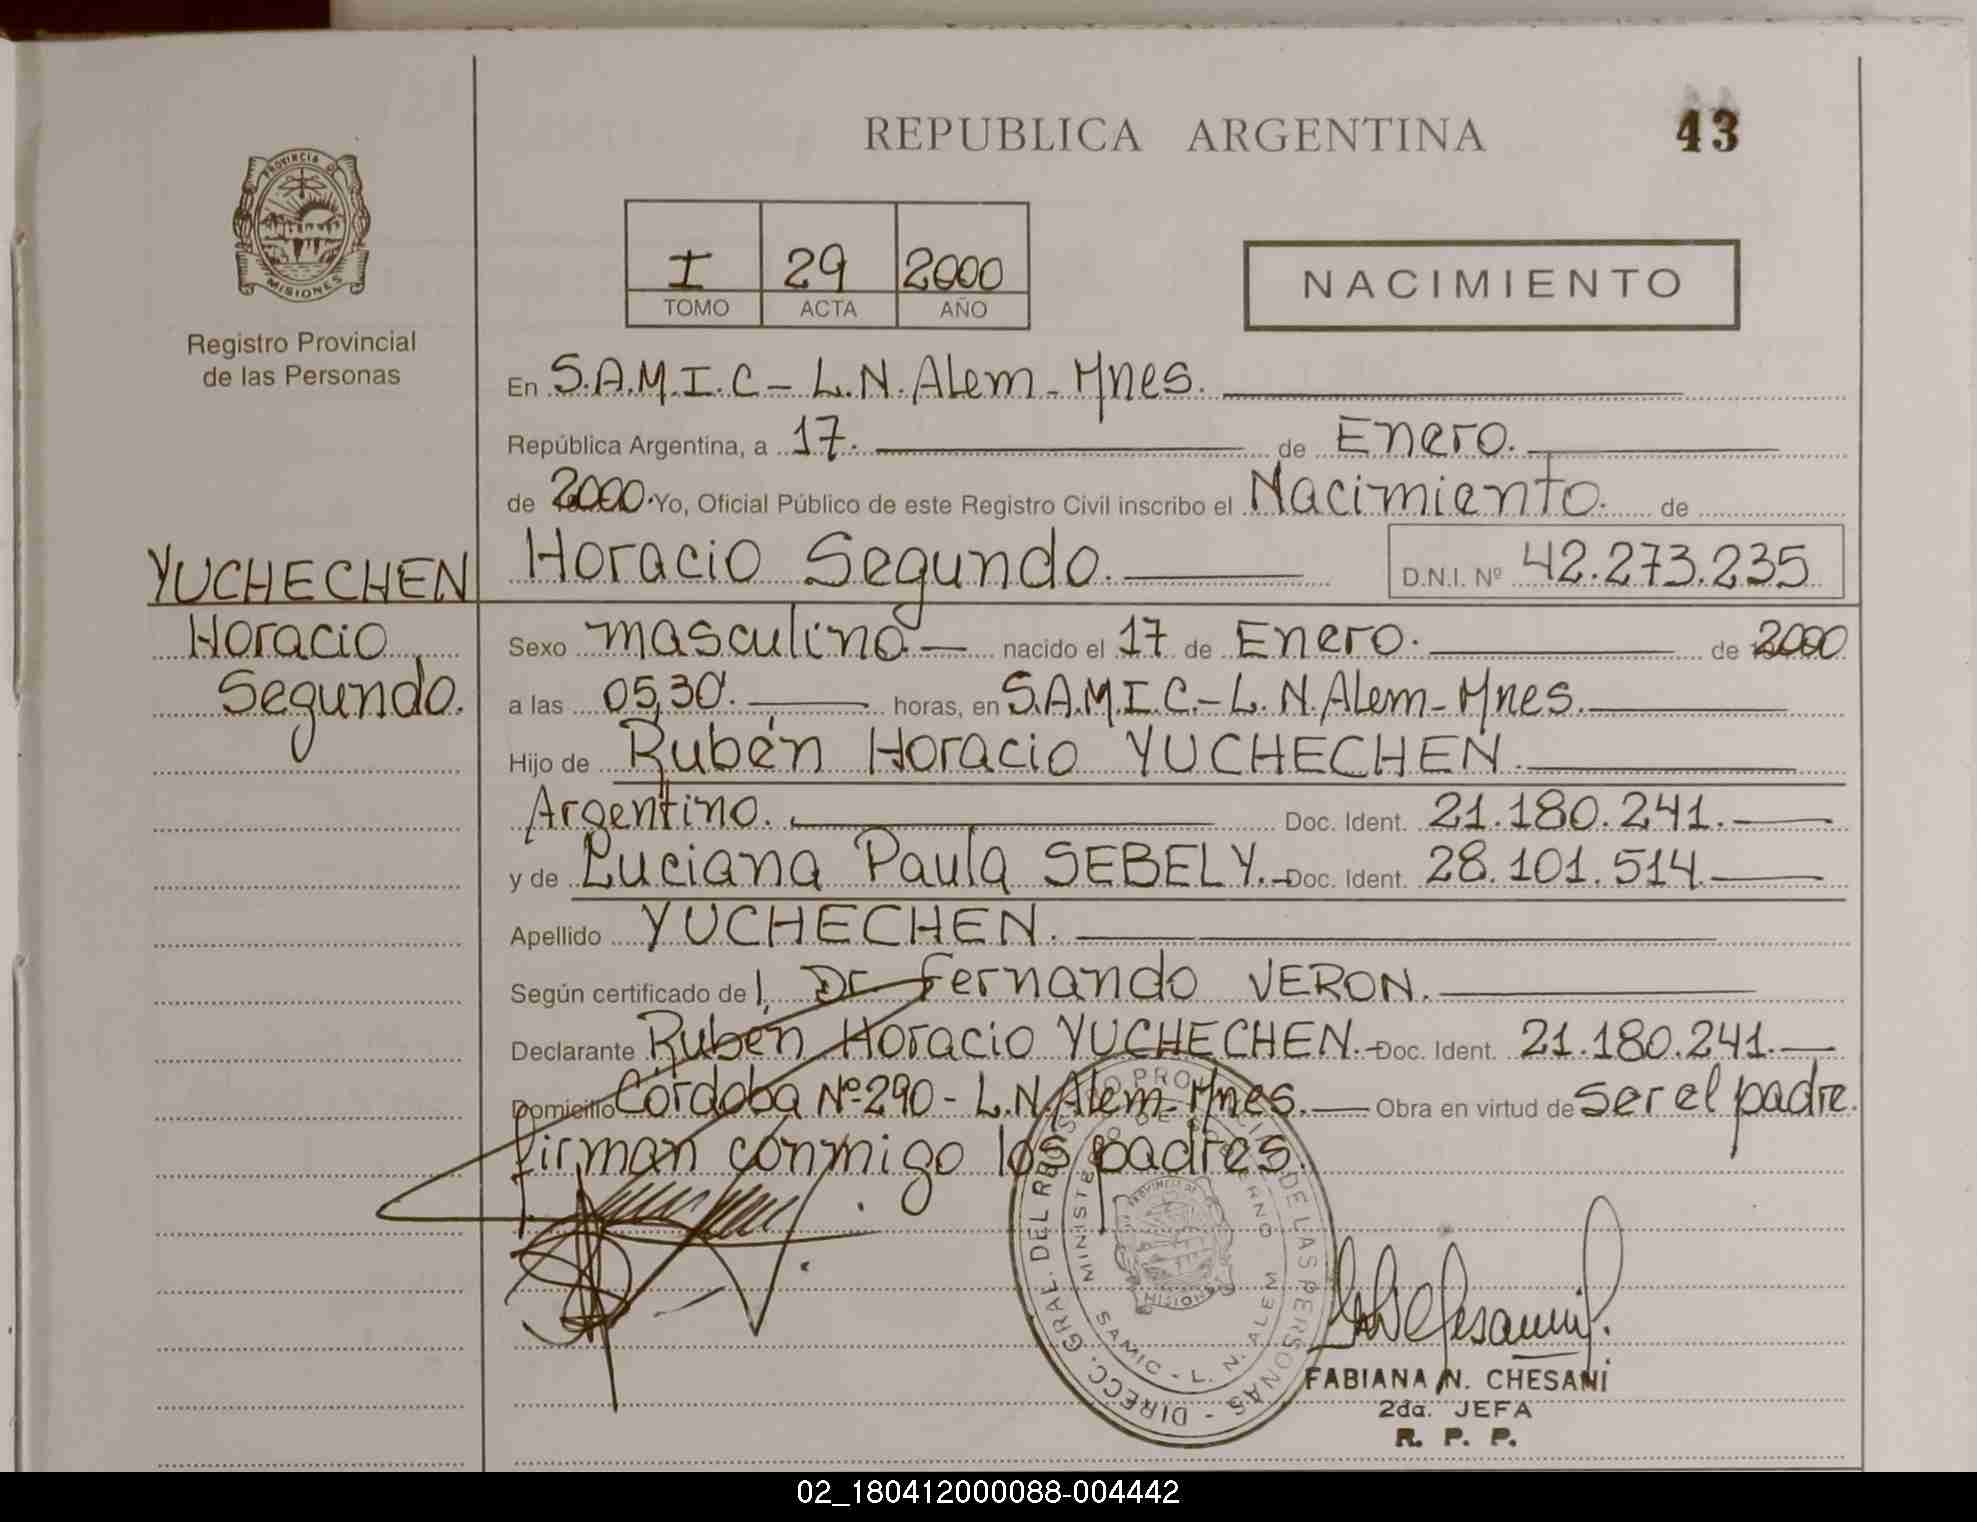 REPUBLICA ARGENTINA
43
PROVINCIA DE
MISIONES
Registro Provincial
de las Personas
I 29 2000
TOMO ACTA AÑO
NACIMIENTO
En S.A.M.I.C - L.N. Alem - Mnes.
República Argentina, a 17. de Enero.
de 2000. Yo, Oficial Público de este Registro Civil inscribo el Nacimiento. de
YUCHECHEN Horacio Segundo. D.N.I. Nº 42.273.235
Horacio
Segundo.
Sexo masculino nacido el 17 de Enero. de 2000
a las 05,30'. horas, en S.A.M.I.C.- L. N. Alem - Mnes.
Hijo de Rubén Horacio YUCHECHEN.
Argentino. Doc. Ident. 21.180.241.
y de Luciana Paula SEBELY. Doc. Ident. 28.101.514.
Apellido YUCHECHEN.
Según certificado de l. Dr. Fernando VERON.
Declarante Rubén Horacio YUCHECHEN. Doc. Ident. 21.180.241.
Domicilio Córdoba Nº 290 - L.N. Alem - Mnes. Obra en virtud de ser el padre.
firman conmigo los padres.
DIRECC. GRAL. DEL REGISTRO PROVINCIAL DE LAS PERSONAS
MINISTERIO DE GOBIERNO
PROVINCIA DE
MISIONES
SAMIC - L. N. ALEM
FABIANA N. CHESANI
2da. JEFA
R. P. P.
02_180412000088-004442